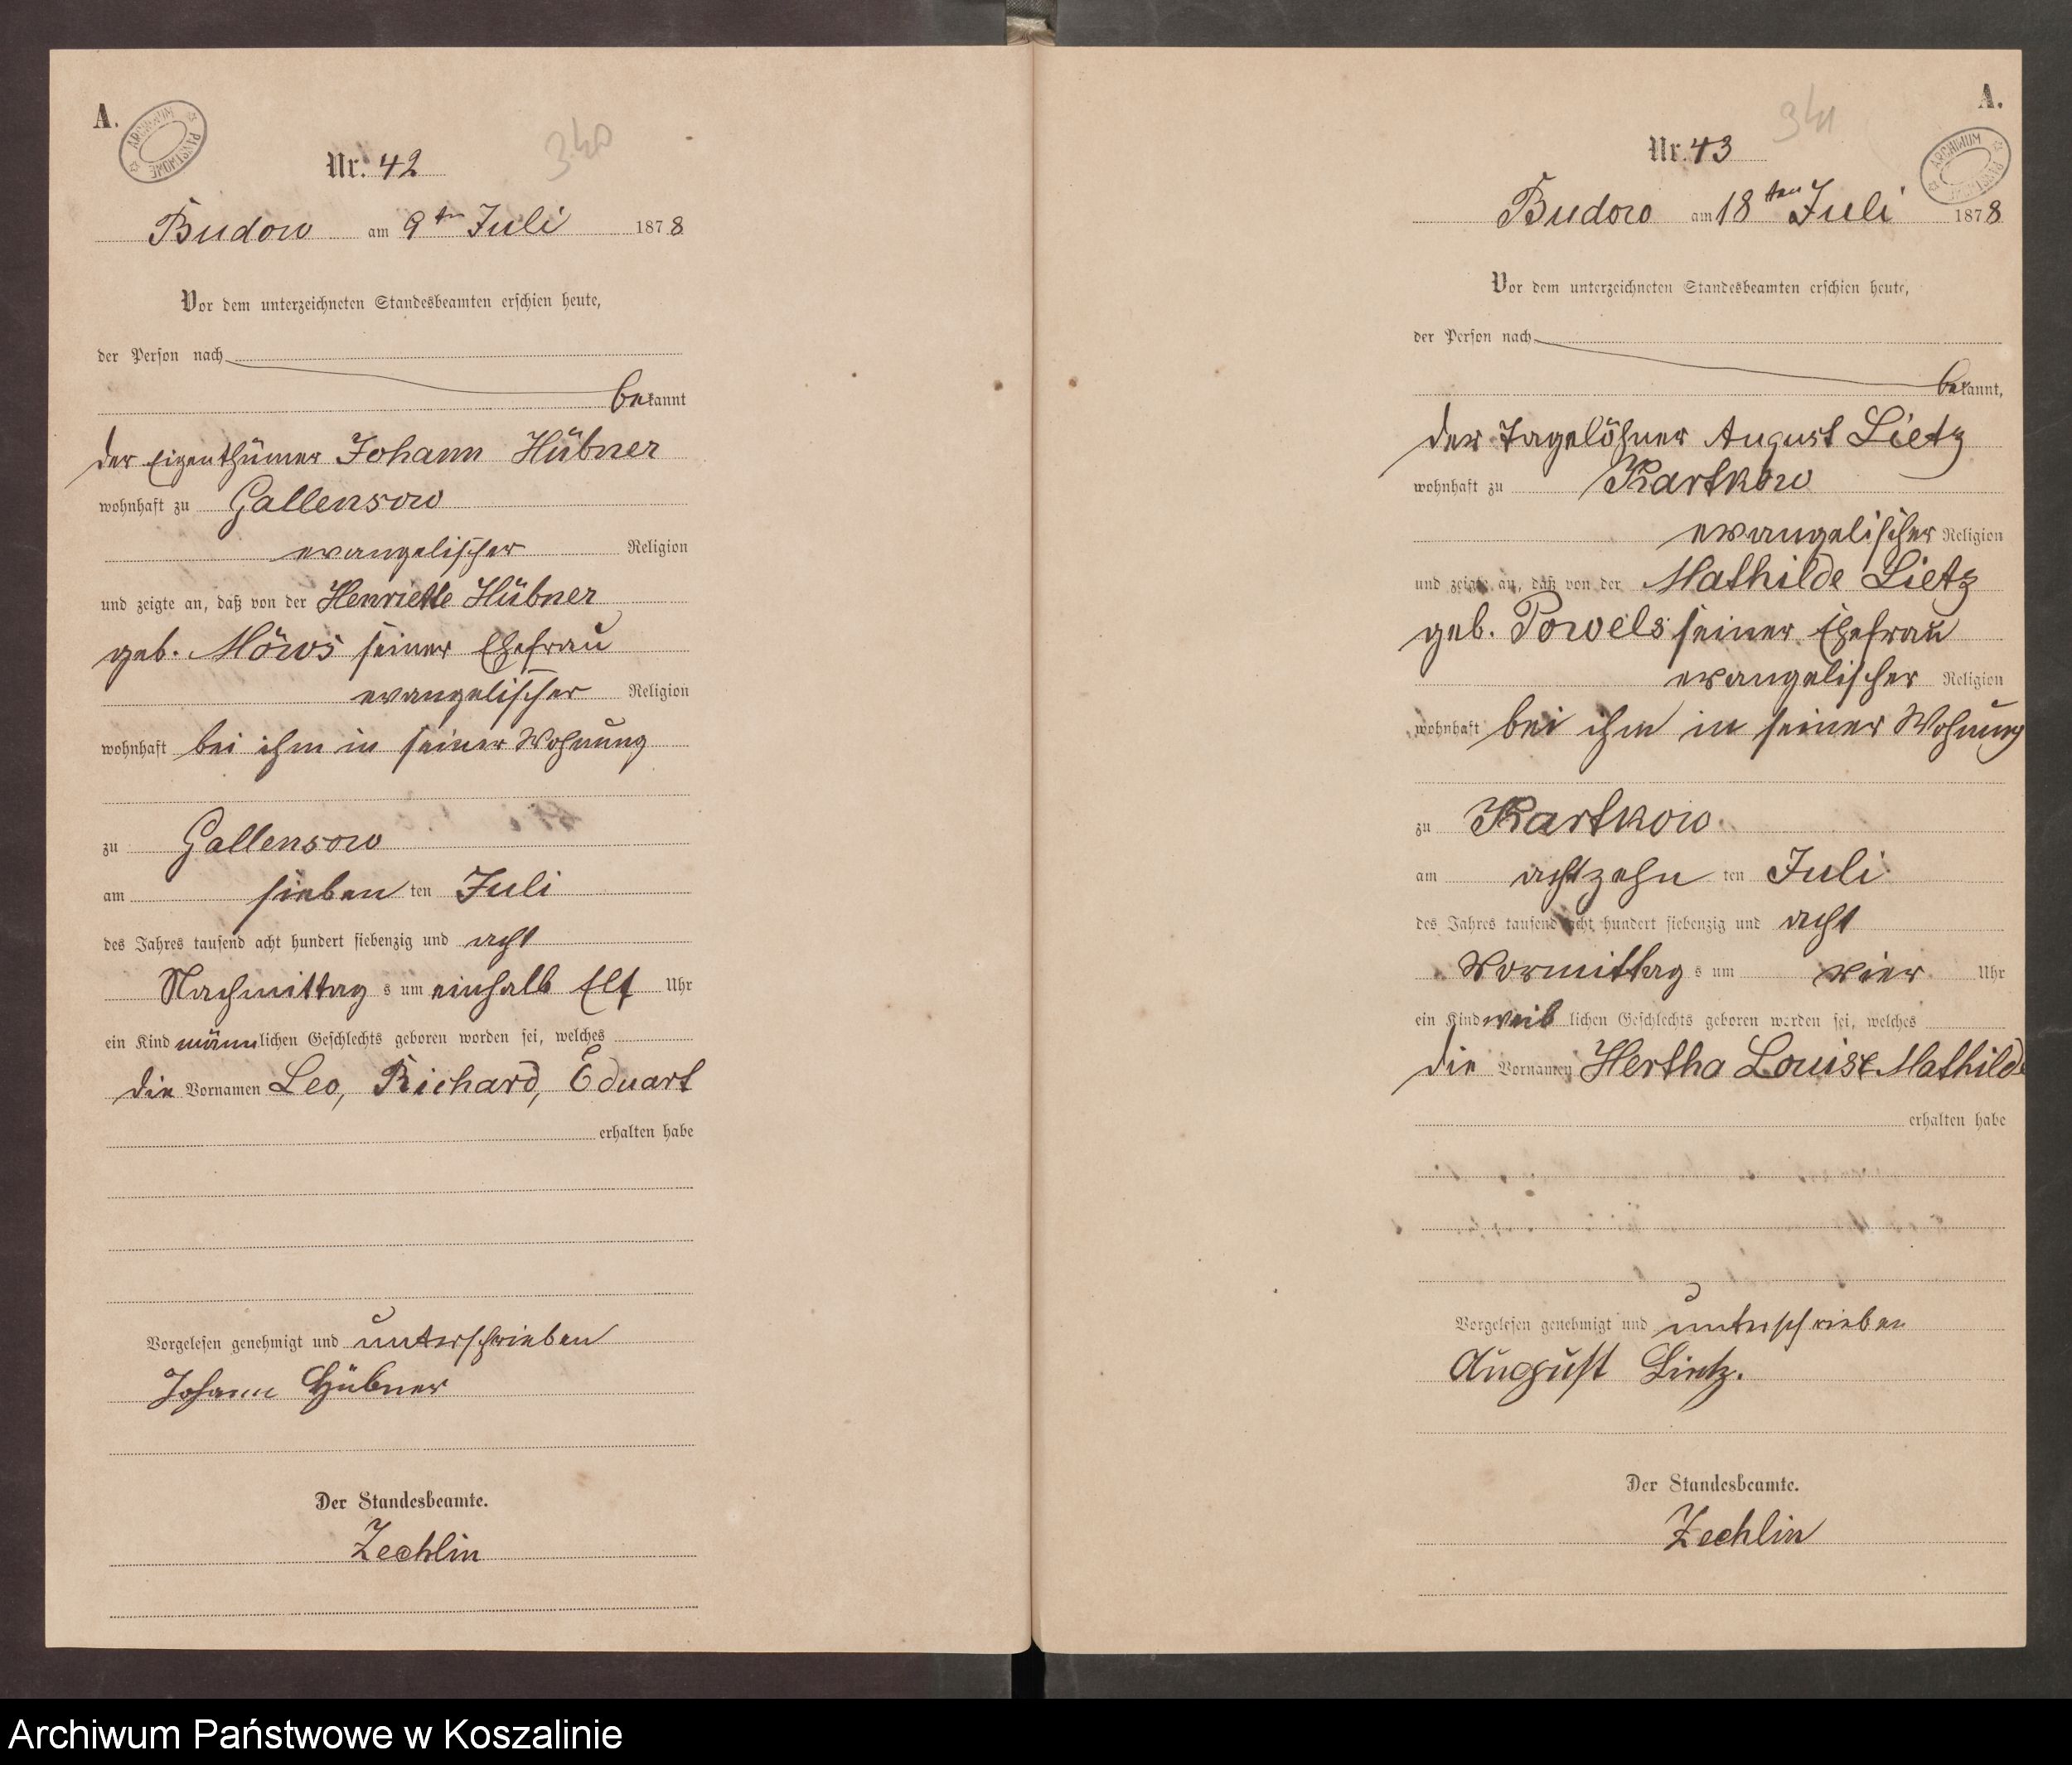 A.
ARCHIWUM PAŃSTWOWE
340
Nr. 42
Budow am 9ten Juli 1878
Vor dem unterzeichneten Standesbeamten erschien heute,
der Person nach
bekannt
der Eigenthümer Johann Hübner
wohnhaft zu Gallensow
evangelischer Religion
und zeigte an, daß von der Henriette Hübner
geb. Möws seiner Ehefrau
evangelischer Religion
wohnhaft bei ihm in seiner Wohnung
zu Gallensow
am sieben ten Juli
des Jahres tausend acht hundert siebenzig und acht
Nachmittag s um einhalb Elf Uhr
ein Kind männlichen Geschlechts geboren worden sei, welches
die Vornamen Leo, Richard, Eduart
erhalten habe
Vorgelesen genehmigt und unterschrieben
Johann Hübner
Der Standesbeamte.
Zechlin
A.
ARCHIWUM
341
Nr. 43
Budow am 18ten Juli 1878
Vor dem unterzeichneten Standesbeamten erschien heute,
der Person nach
bekannt,
der Tagelöhner August Lietz
wohnhaft zu Kartkow
evangelischer Religion
und zeigte an, daß von der Mathilde Lietz
geb. Powels seiner Ehefrau
evangelischer Religion
wohnhaft bei ihm in seiner Wohnung
zu Kartkow
am achtzehn ten Juli
des Jahres tausend acht hundert siebenzig und acht
Vormittag s um vier Uhr
ein Kind weib lichen Geschlechts geboren worden sei, welches
die Vornamen Hertha Louise Mathilde
erhalten habe
Vorgelesen genehmigt und unterschrieben
August Lietz.
Der Standesbeamte.
Zechlin
Archiwum Państwowe w Koszalinie